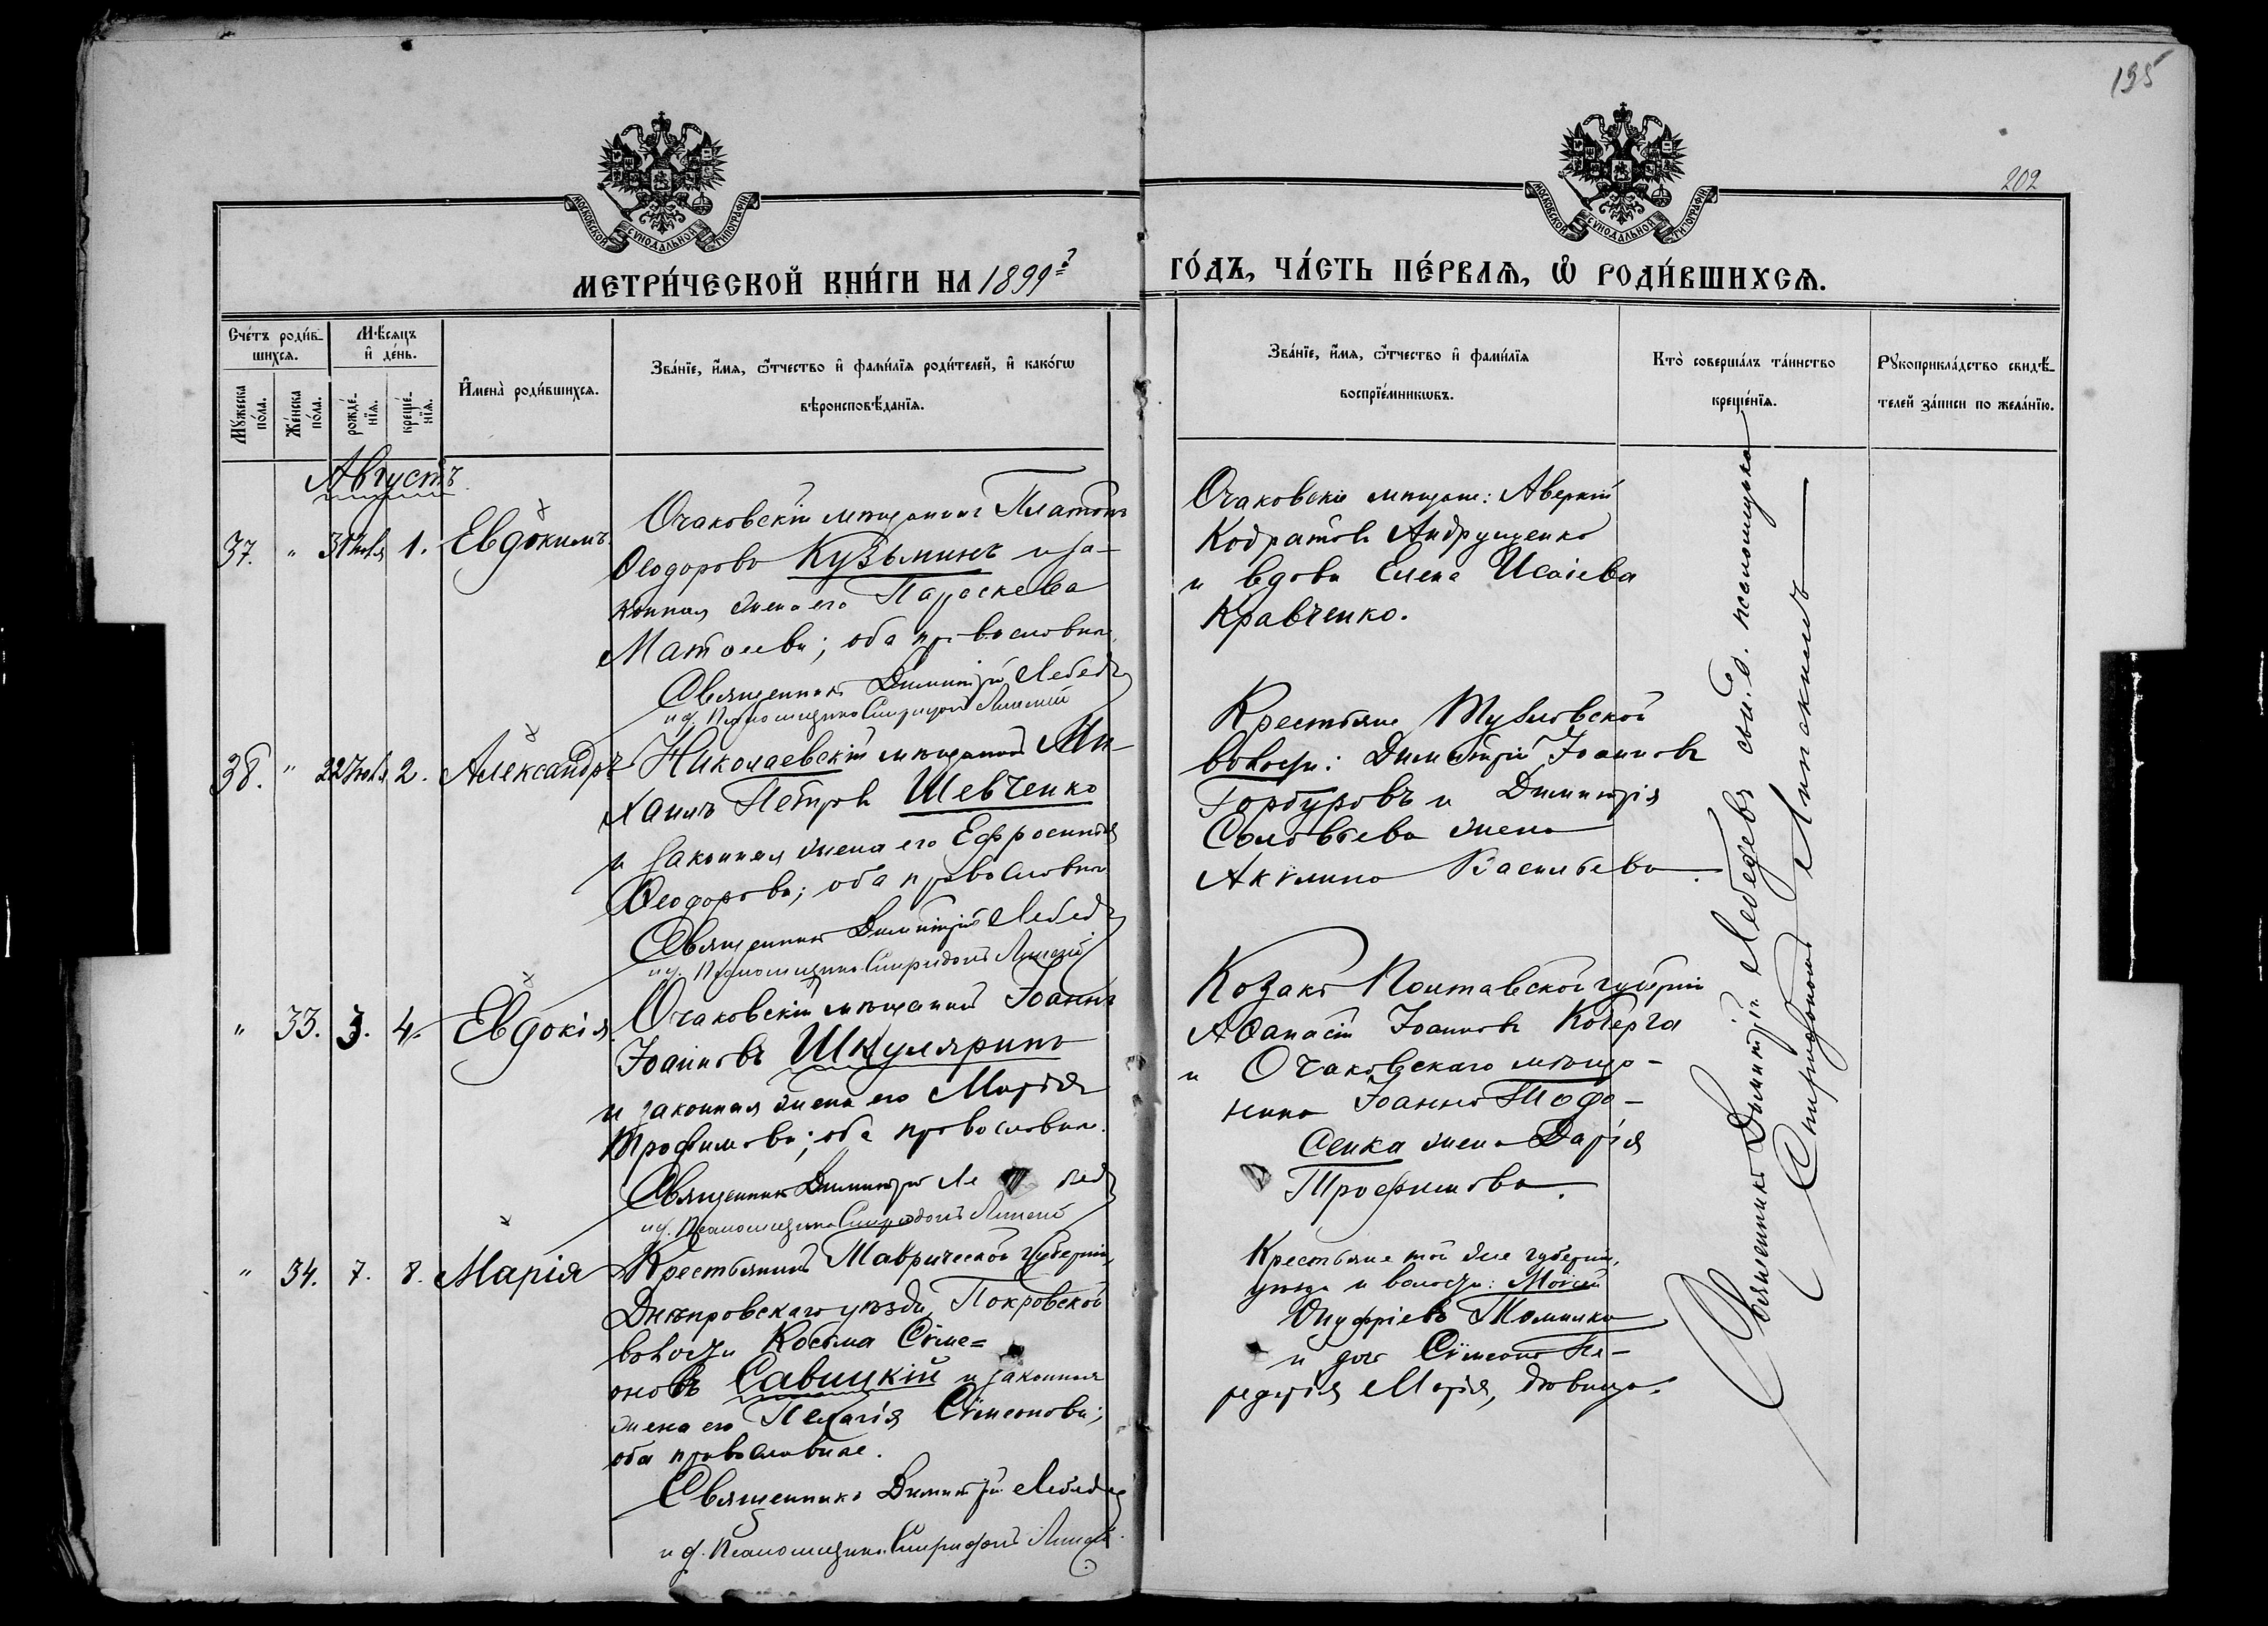 195
202
МОСКОВСКОЙ СѴНОДАЛЬНОЙ ТИПОГРАФІИ
МОСКОВСКОЙ СѴНОДАЛЬНОЙ ТИПОГРАФІИ
МЕТРИ́ЧЕСКОЙ КНИ́ГИ НА 1899й
ГО́ДЪ, ЧА́СТЬ ПЕ́РВАѦ, Ѡ҆ РОДИ́ВШИХСѦ.
Сче́тъ роди́в-
шихсѧ.
Мꙋ́жеска
по́ла.
Же́нска
по́ла.
Мѣ́сяцъ
и҆ де́нь.
рожде́-
нїѧ.
креще́-
нїѧ.
И҆мена̀ роди́вшихсѧ.
Зва́нїе, и҆́мѧ, ѻ҆́тчество и҆ фами́лїѧ роди́телей, и҆ како́гѡ
вѣроисповѣ́данїѧ.
Зва́нїе, и҆́мѧ, ѻ҆́тчество и҆ фами́лїѧ
воспрїе́мникѡвъ.
Кто̀ соверша́лъ та́инство
креще́нїѧ.
Рꙋкоприкла́дство свидѣ́-
телей за́писи по жела́нїю.
Августъ
37. " 31 Іюля 1. Евдокимъ.
Очаковскій мѣщанинъ Платонъ
Ѳеодоровъ Кузьминъ и за-
конная жена его Параскева
Матѳеева; оба православные.
Священникъ Димитрій Лебедевъ
и. д. Псаломщика Спиридонъ
Очаковскіе мѣщане: Аверкій
Кодратовъ Андрущенко
и вдова Елена Исаіева
Кравченко.
38. " 22 Іюля 2. Александръ
Николаевскій мѣщанинъ Ми-
хаилъ Петровъ Шевченко
и законная жена его Ефросинія
Ѳеодорова; оба православные
Священникъ Димитрій Лебедевъ
и. д. Псаломщика Спиридонъ
Крестьяне
волости: Димитрій Іоанновъ
Горбуровъ и Димитрія
Соловьева жена
Акилина Васильева.
" 33. 3. 4. Евдокія
Очаковскій мѣщанинъ Іоаннъ
Іоанновъ Шкуляринъ
и законная жена его Марія
Трофимова; оба православные.
Священникъ Димитрій Лебедевъ
и. д. Псаломщика Спиридонъ
Козакъ Полтавской губерніи
Аѳанасій Іоанновъ Кочерга
и Очаковскаго мѣща-
нина Іоанна
жена Дарія
Трофимова.
" 34. 7. 8. Марія
Крестьянинъ Таврической губерніи,
Днѣпровскаго уѣзда, Покровской
волости Косьма Сѵме-
оновъ Савицкій и законная
жена его Пелагія Сѵмеонова;
оба православные.
Священникъ Димитрій Лебедевъ
и. д. Псаломщика Спиридонъ
Крестьяне той же губерніи,
уѣзда и волости: Моисей
Онуфріевъ
и дочь Сѵмеона
Марія, дѣвица.
Священникъ Димитрій Лебедевъ съ и. д. псаломщика
Спиридономъ